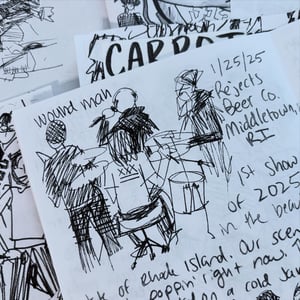 CARROT
wound man
1/25/25
Rejects
Beer Co.
Middletown,
RI
1st Show
of 2025
in the
of Rhode Island. Our scen
poppin' right now
a cold